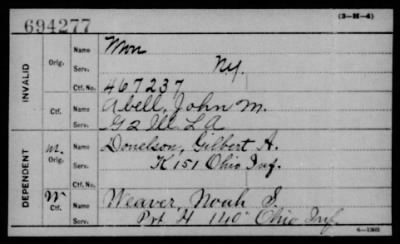 694277
(3-H-4)
INVALID
Orig.
Name
Serv.
Ctf. No.
N.Y.
467237
Ctf.
Name Abell, John M.
Serv. G 2 Ill. L A
DEPENDENT
Orig.
Name Donelson, Gilbert A.
Serv. K 151 Ohio Inf.
Ctf. No.
Ctf.
Name Weaver, Noah S.
Serv. Pvt H 140" Ohio Inf.